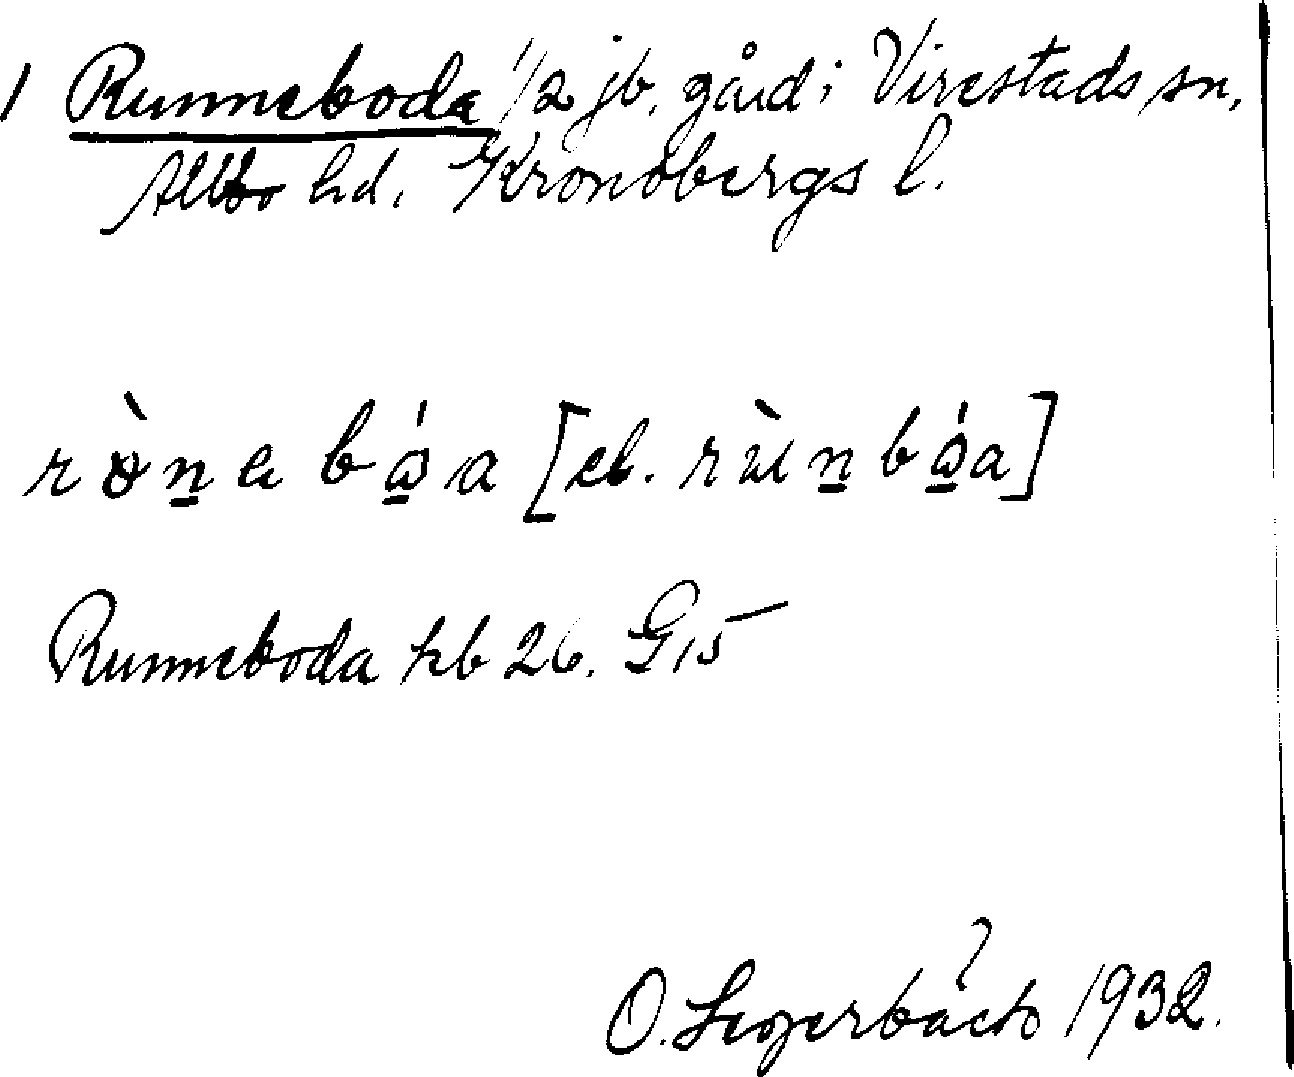 1 Runneboda 1/2 jb. gård i Virestads sn,
Allbo hd. Kronobergs l.
rö̀n̲e bá̲a [el. rùn̲bá̲a]
Runneboda kb 26. G15
O. 1932.